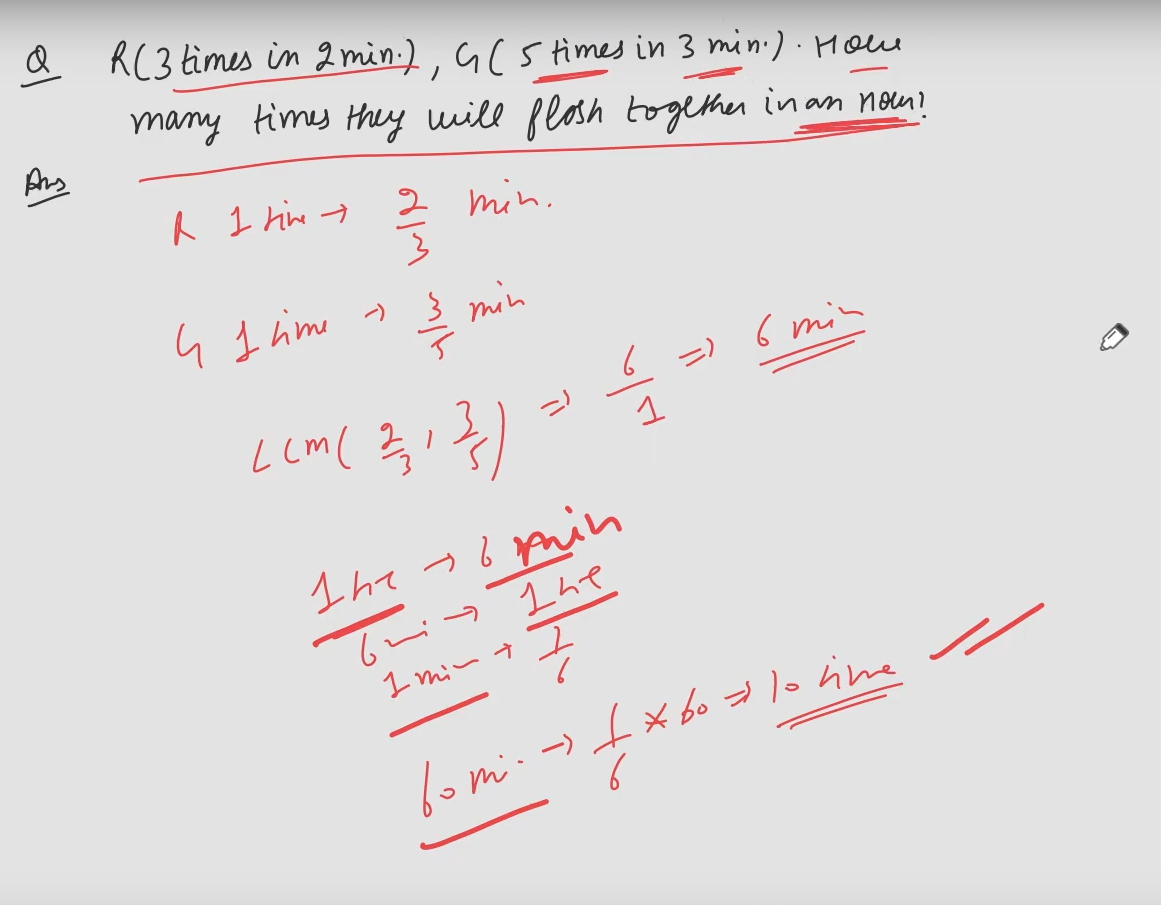 Q R(3 times in 2 min.), G(5 times in 3 min.). How
many times they will flash together in an hour?
Ans
R 1 time → 2/3 min.
G 1 time → 3/5 min
LCM(2/3, 3/5) ⇒ 6/1 ⇒ 6 min
1 → 6 min
6 mi → 1
1 min → 1/6
60 mi. → 1/6 * 60 ⇒ 10 time